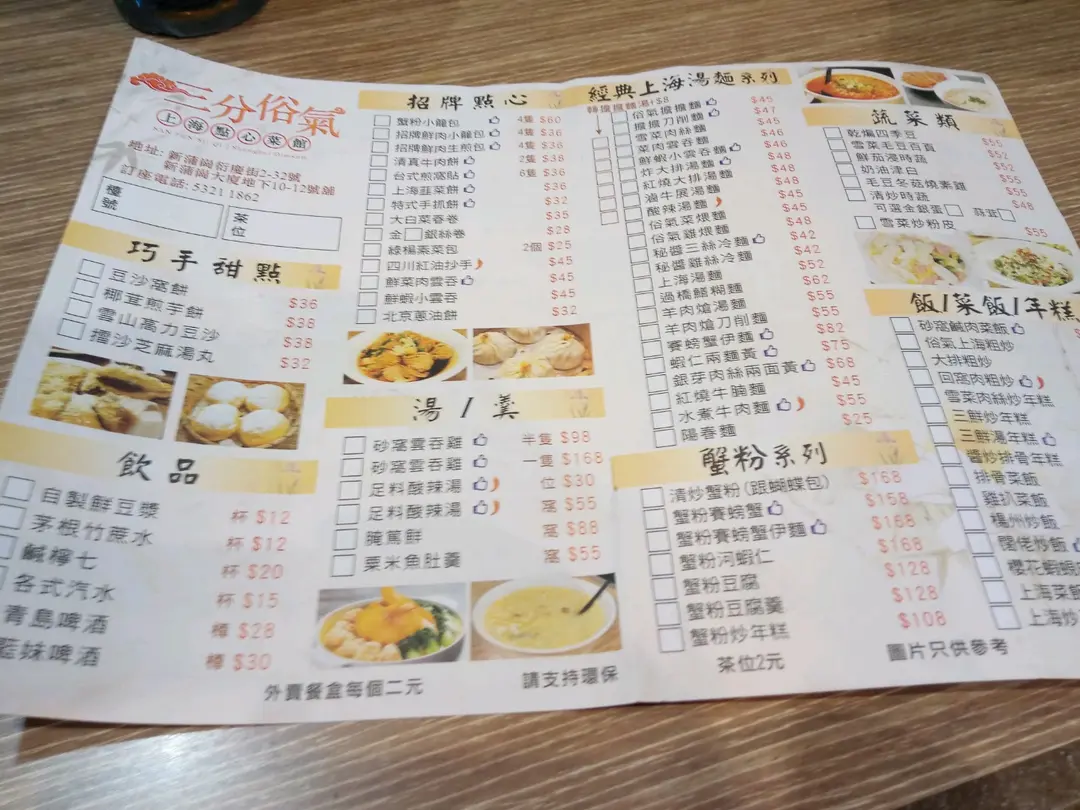 三分俗氣
上海點心菜館
地址: 新蒲崗衍慶街2-32號
新蒲崗大廈地下10-12號舖
訂座電話: 5321 1862
檯號
茶位
巧手甜點
豆沙窩餅 $36
椰茸煎芋餅 $38
雪山高力豆沙 $38
擂沙芝麻湯丸 $32
飲品
自製鮮豆漿 杯 $12
茅根竹蔗水 杯 $12
鹹檸七 杯 $20
各式汽水 杯 $15
青島啤酒 樽 $28
藍妹啤酒 樽 $30
招牌點心
蟹粉小龍包 4隻 $60
招牌鮮肉小龍包 4隻 $36
招牌鮮肉生煎包 4隻 $36
清真牛肉餅 2隻 $38
台式煎窩貼 6隻 $36
上海韮菜餅 $36
特式手抓餅 $32
大白菜春卷 $35
金 銀絲卷 $28
綠楊素菜包 2個 $25
四川紅油抄手 $45
鮮菜肉雲吞 $45
鮮蝦小雲吞 $45
北京蔥油餅 $32
湯/羹
砂窩雲吞雞 半隻 $98
砂窩雲吞雞 一隻 $168
足料酸辣湯 位 $30
足料酸辣湯 窩 $55
醃篤鮮 窩 $88
粟米魚肚羹 窩 $55
外賣餐盒每個二元
請支持環保
經典上海湯麵系列
轉擔擔麵湯+$8
俗氣擔擔麵 $45
擔擔刀削麵 $47
雪菜肉絲麵 $45
菜肉雲吞麵 $46
鮮蝦小雲吞麵 $46
炸大排湯麵 $48
紅燒大排湯麵 $48
滷牛展湯麵 $48
酸辣湯麵 $45
俗氣菜煨麵 $45
俗氣雞煨麵 $48
秘醬三絲冷麵 $42
秘醬雞絲冷麵 $42
上海湯麵
過橋鱔糊麵 $52
羊肉熗湯麵 $62
羊肉熗刀削麵 $55
賽螃蟹伊麵 $55
蝦仁兩麵黃 $82
銀芽肉絲兩面黃 $75
紅燒牛腩麵 $68
水煮牛肉麵 $45
陽春麵 $55
$25
蟹粉系列
清炒蟹粉(跟蝴蝶包) $168
蟹粉賽螃蟹 $158
蟹粉賽螃蟹伊麵 $168
蟹粉河蝦仁 $168
蟹粉豆腐 $128
蟹粉豆腐羹 $128
蟹粉炒年糕 $108
茶位2元
圖片只供參考
蔬菜類
乾煸四季豆 $55
雪菜毛豆百頁 $52
鮮茄浸時蔬 $52
奶油津白 $55
毛豆冬菇燒素雞 $55
清炒時蔬
可選金銀蛋 蒜茸
雪菜炒粉皮 $55
飯/菜飯/年糕
砂窩鹹肉菜飯
俗氣上海粗炒
大排粗炒
回窩肉粗炒
雪菜肉絲炒年糕
三鮮炒年糕
三鮮湯年糕
醬炒排骨年糕
排骨菜飯
雞扒菜飯
楊州炒飯
闊佬炒飯
櫻花蝦蝦
上海菜飯
上海炒